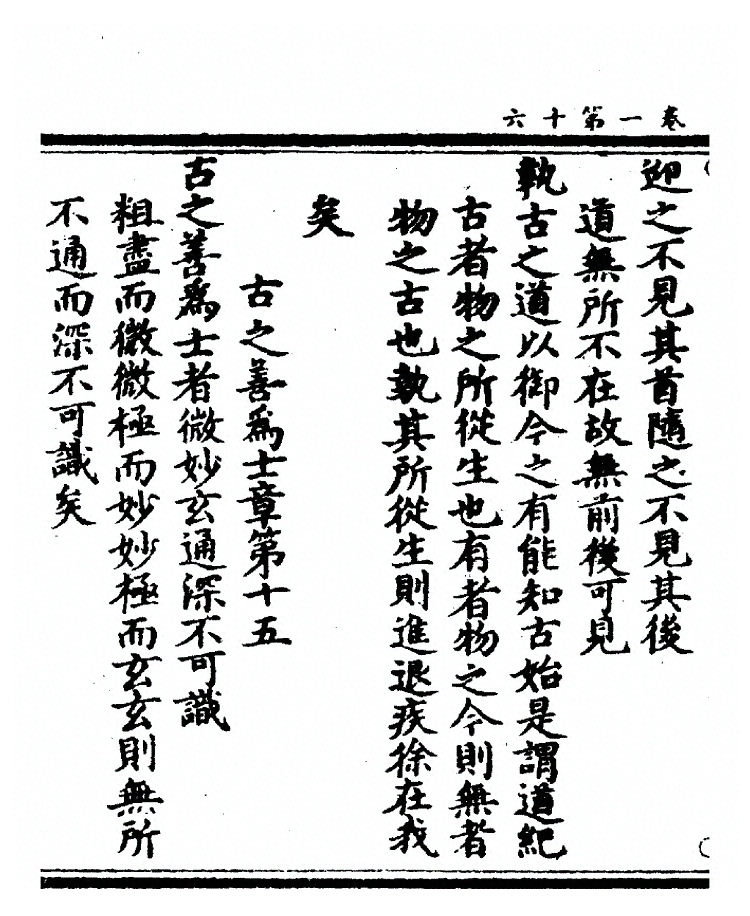 卷一第十六
迎之不見其首隨之不見其後
道無所不在故無前後可見
執古之道以御今之有能知古始是謂道紀
古者物之所從生也有者物之今則無者
物之古也執其所從生則進退疾徐在我
矣
古之善爲士章第十五
古之善爲士者微妙玄通深不可識
粗盡而微微極而妙妙極而玄玄則無所
不通而深不可識矣